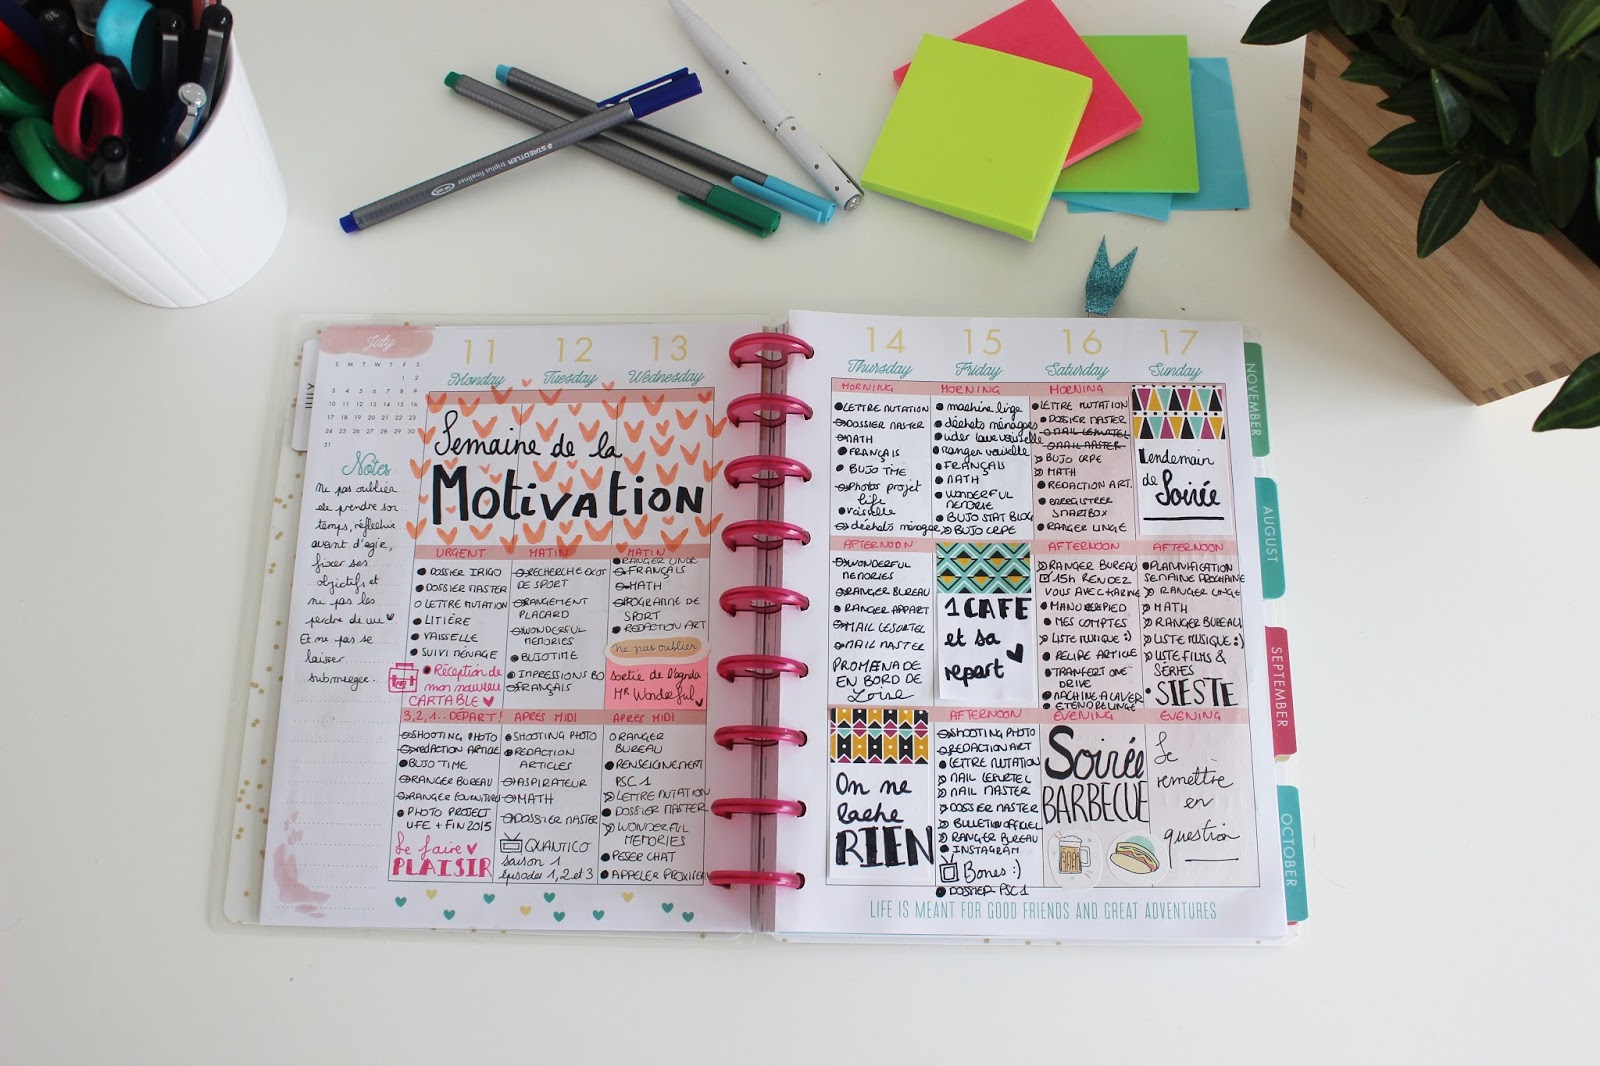 STAEDTLER triplus fineliner
July
S M T W T F S
1 2
3 4 5 6 7 8 9
10 11 12 13 14 15 16
17 18 19 20 21 22 23
24 25 26 27 28 29 30
31
Notes
ne pas oublier
de prendre son
temps, réfléchir
avant d'agir,
fixer ses
objectifs et
ne pas les
perdre de vue
Et ne pas se
laisser
submerger.
11
Monday
12
Tuesday
13
Wednesday
Semaine de la
MOTIVATION
URGENT
DOSSIER IRIGO
DOSSIER MASTER
LETTRE MUTATION
LITIÈRE
VAISSELLE
SUIVI MÉNAGE
Réception de
mon nouveau
CARTABLE
3, 2, 1... DÉPART!
SHOOTING PHOTO
REDACTION ARTICLE
BUJO TIME
RANGER BUREAU
RANGER FOURNITURES
PHOTO PROJECT
LIFE + FIN 2015
Se faire
PLAISIR
MATIN
RECHERCHE EXOS
DE SPORT
RANGEMENT
PLACARD
WONDERFUL
MEMORIES
BUJOTIME
IMPRESSIONS BO
FRANÇAIS
APRÈS MIDI
SHOOTING PHOTO
REDACTION
ARTICLES
ASPIRATEUR
MATH
DOSSIER MASTER
QUANTICO
saison 1
épisodes 1, 2 et 3
MATIN
RANGER LINGE
FRANÇAIS
MATH
PROGRAMME DE
SPORT
REDACTION ART
ne pas oublier
sortie de l'agenda
MR Wonderful
APRÈS MIDI
RANGER
BUREAU
RENSEIGNEMENT
PSC 1
LETTRE MUTATION
DOSSIER MASTER
WONDERFUL
MEMORIES
PESER CHAT
APPELER
14
Thursday
15
Friday
16
Saturday
17
Sunday
MORNING
LETTRE MUTATION
DOSSIER MASTER
MATH
FRANÇAIS
BUJO TIME
Photos projet
life
vaisselle
déchets ménagers
AFTERNOON
WONDERFUL
MEMORIES
RANGER BUREAU
RANGER APPART
MAIL LESURTEL
MAIL MASTER
PROMENADE
EN BORD DE
Loire
On ne
lâche
RIEN
MORNING
machine linge
déchets ménagers
vider lave vaisselle
ranger vaisselle
FRANÇAIS
MATH
WONDERFUL
MEMORIE
BUJO STAT BLOG
BUJO CRPE
1 CAFÉ
et sa
repart
AFTERNOON
SHOOTING PHOTO
REDACTION ART
LETTRE MUTATION
MAIL LESURTEL
MAIL MASTER
DOSSIER MASTER
BULLETIN OFFICIEL
RANGER BUREAU
INSTAGRAM
Bones :)
DOSSIER PSC 1
MORNING
LETTRE MUTATION
DOSSIER MASTER
MAIL LESURTEL
MAIL MASTER
BUJO CRPE
MATH
REDACTION ART.
ENREGISTRER
SMARTBOX
RANGER LINGE
AFTERNOON
RANGER BUREAU
15h RENDEZ
VOUS AVEC KARINE
MANUCURE PIED
MES COMPTES
LISTE MUSIQUE :)
RELIRE ARTICLE
TRANFERT ONE
DRIVE
MACHINE A LAVER
ETENDRE LINGE
EVENING
Soirée
BARBECUE
Lendemain
de Soirée
AFTERNOON
PLANNIFICATION
SEMAINE PROCHAINE
RANGER LINGE
MATH
RANGER BUREAU
LISTE MUSIQUE :)
LISTE FILMS &
SÉRIES
SIESTE
EVENING
Se
remettre
en
question
LIFE IS MEANT FOR GOOD FRIENDS AND GREAT ADVENTURES
JULY
NOVEMBER
AUGUST
SEPTEMBER
OCTOBER